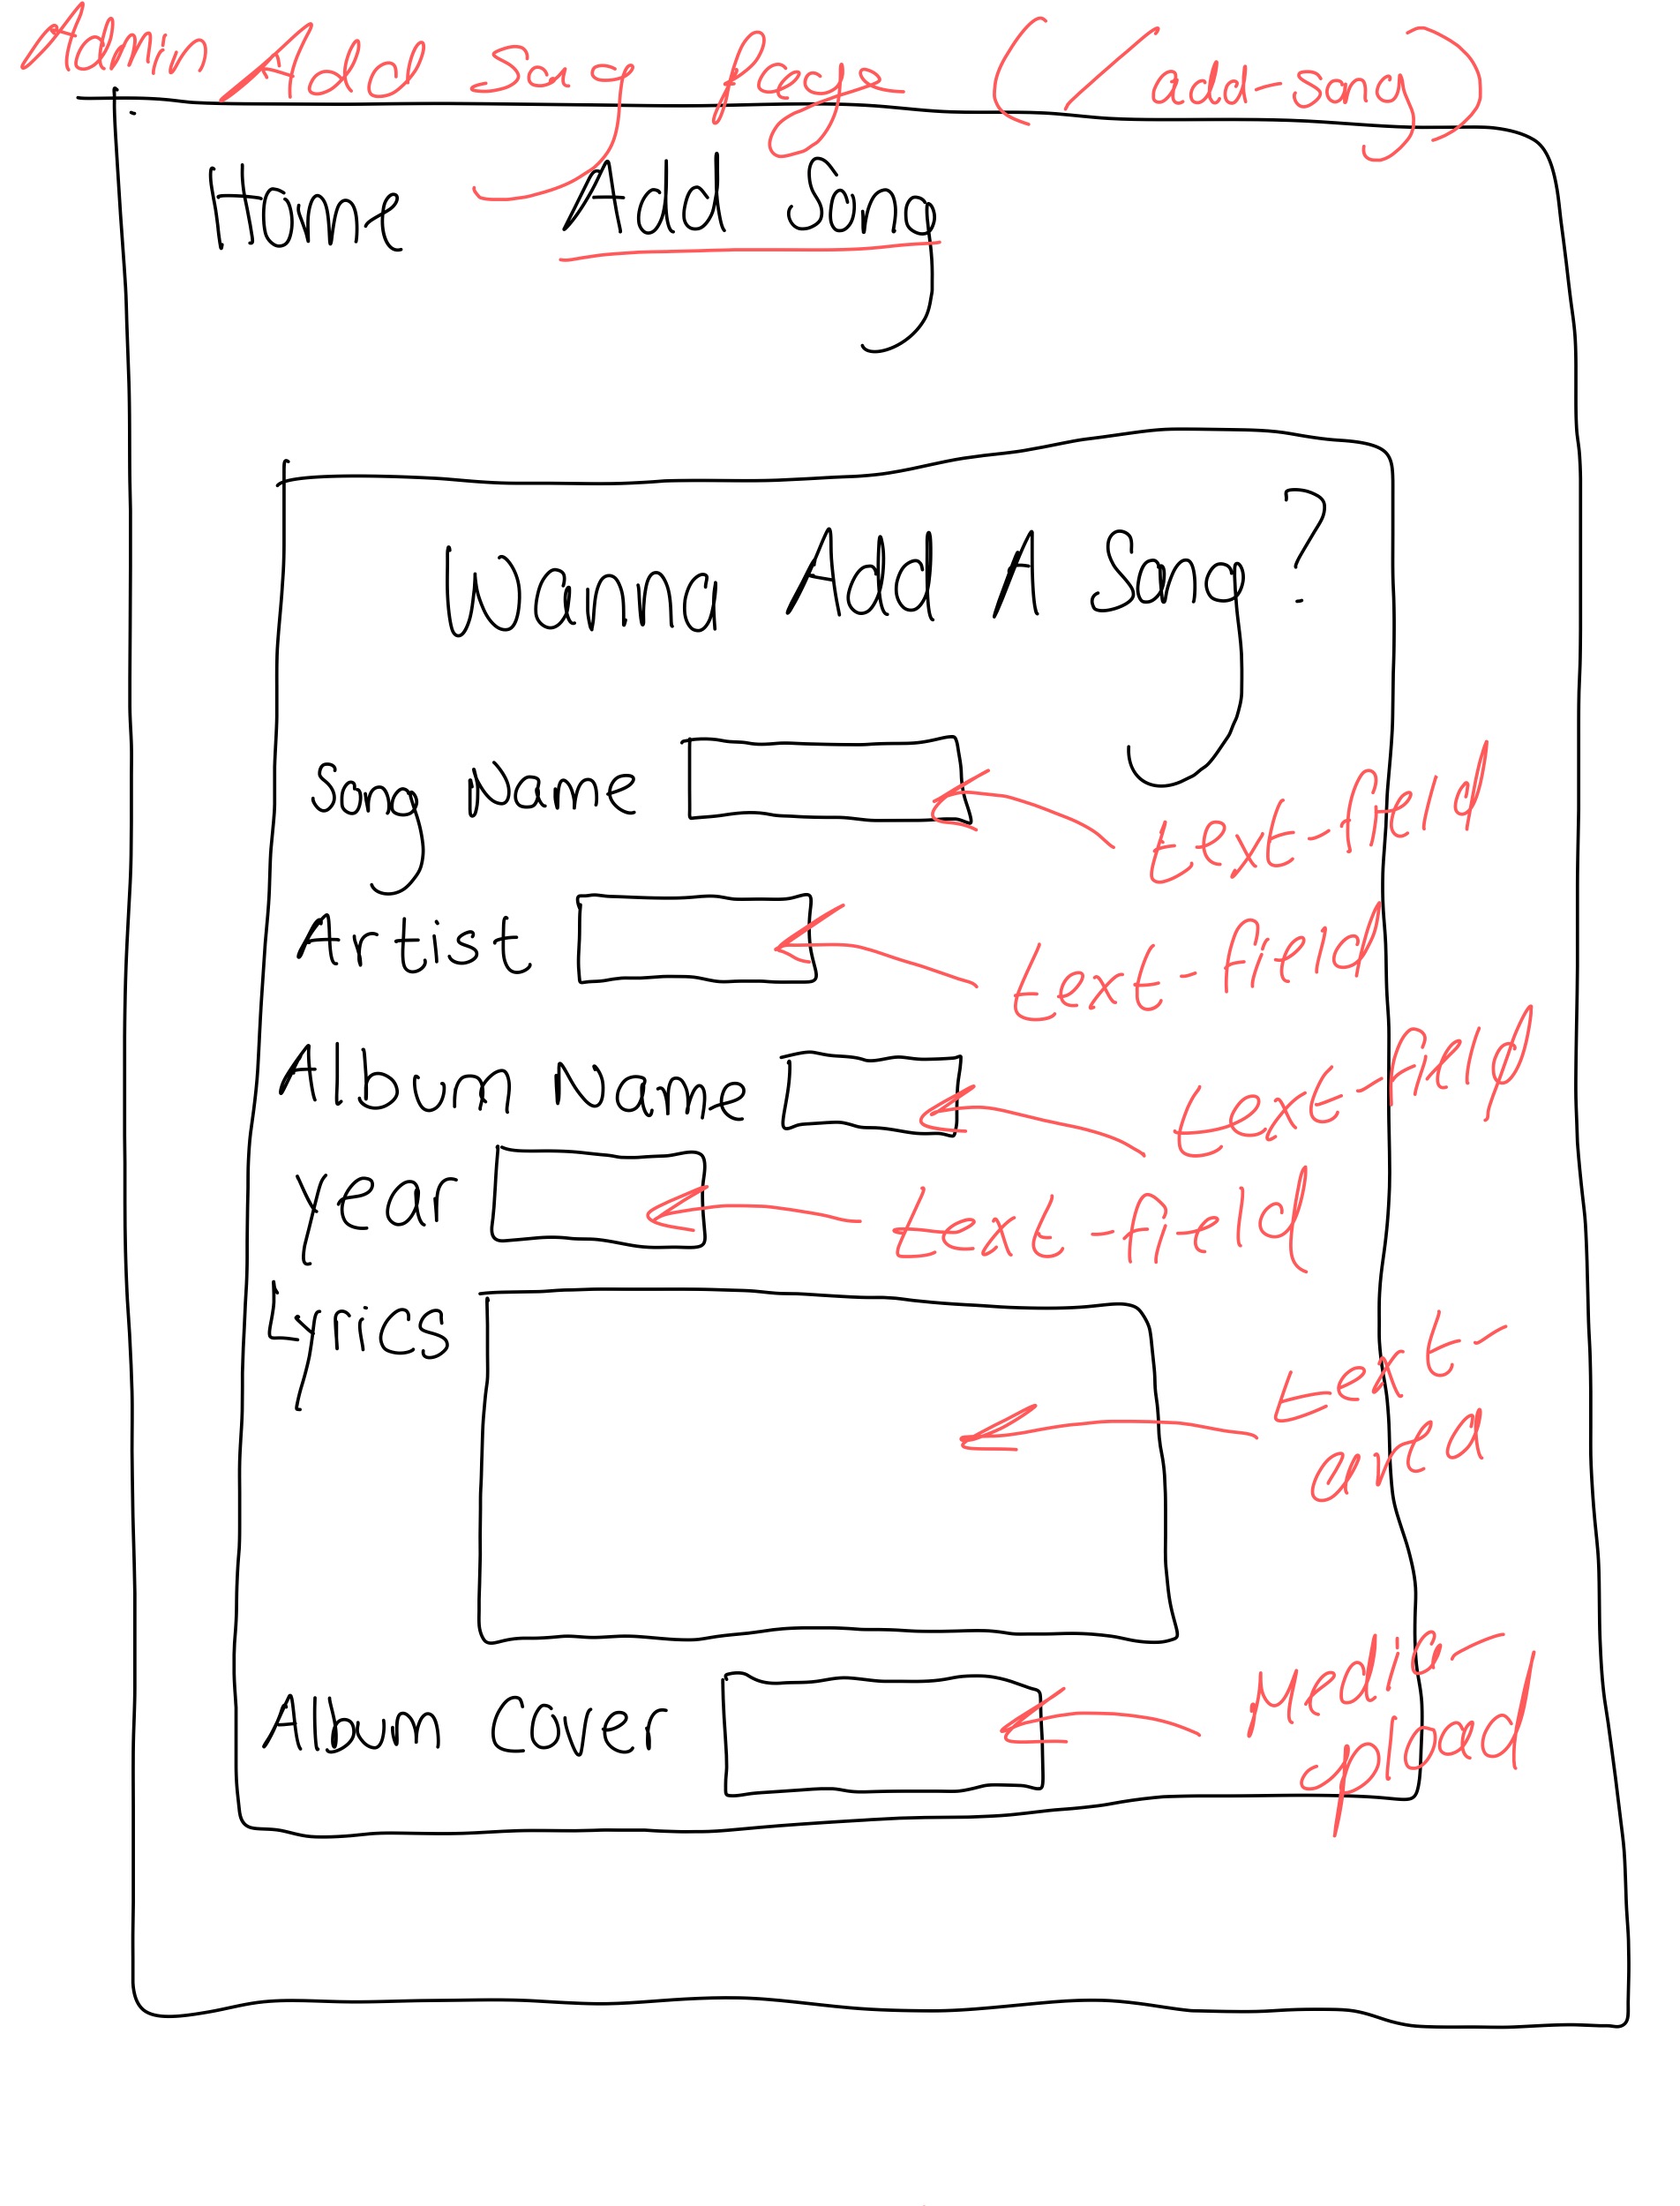 Admin Add Song Page (/add-song)
Home Add Song
Wanna Add A Song?
Song Name
text-field
Artist
text-field
Album Name
text-field
Year
text-field
Lyrics
text-
area
Album Cover